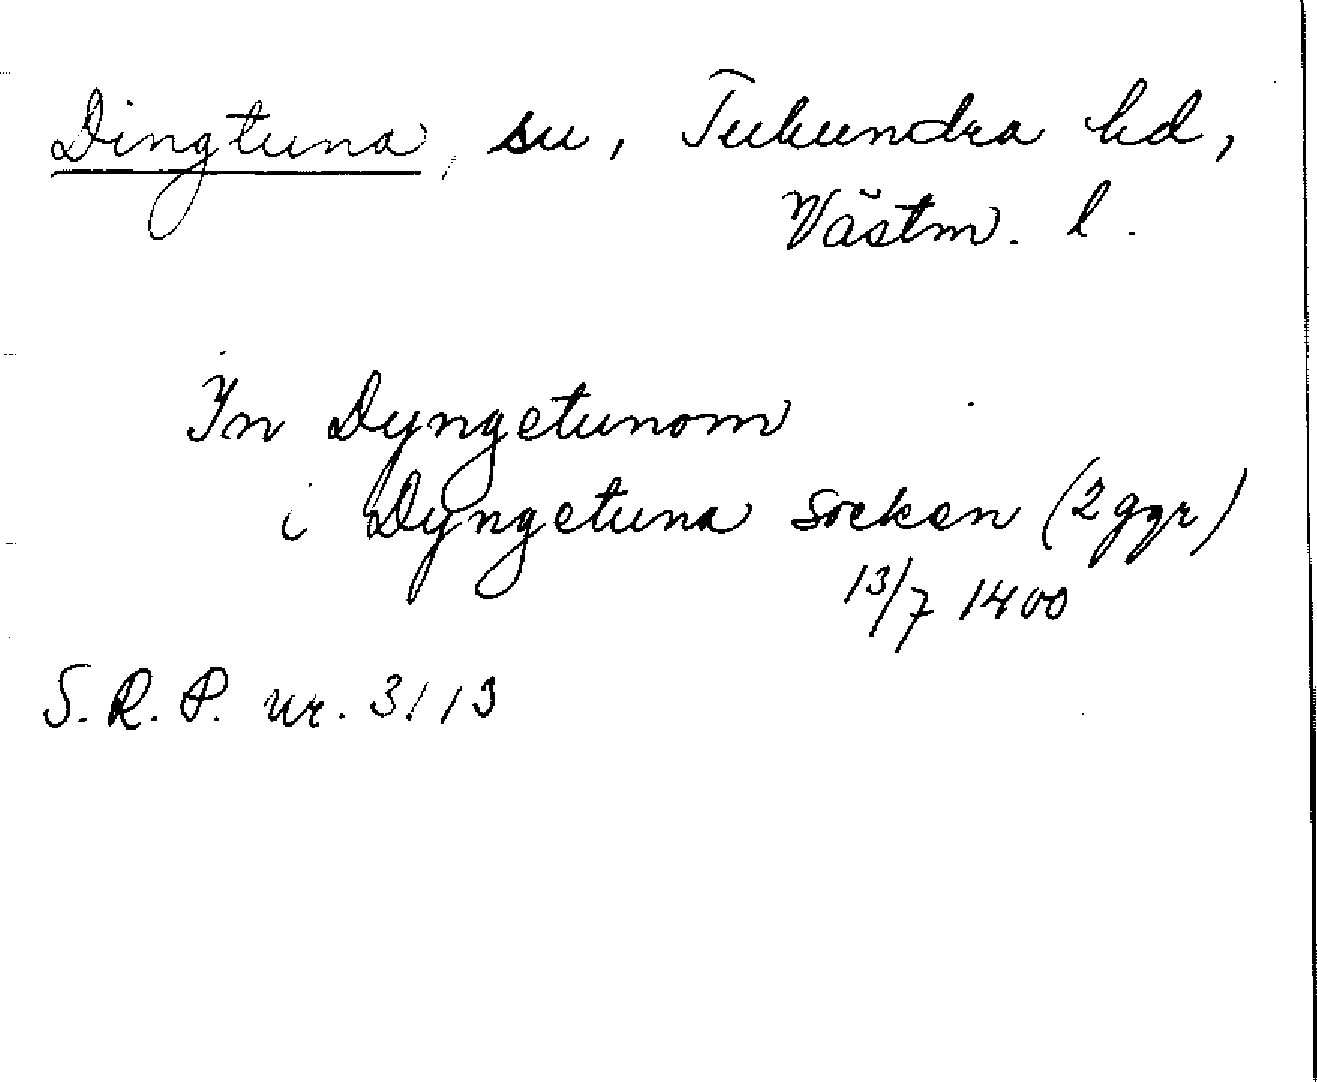 Dingtuna, sn, Tuhundra hd,
Västm. l.
In Dyngetunom
i Dyngetuna socken (2 ggr)
13/7 1400
S.R.P. nr. 3113